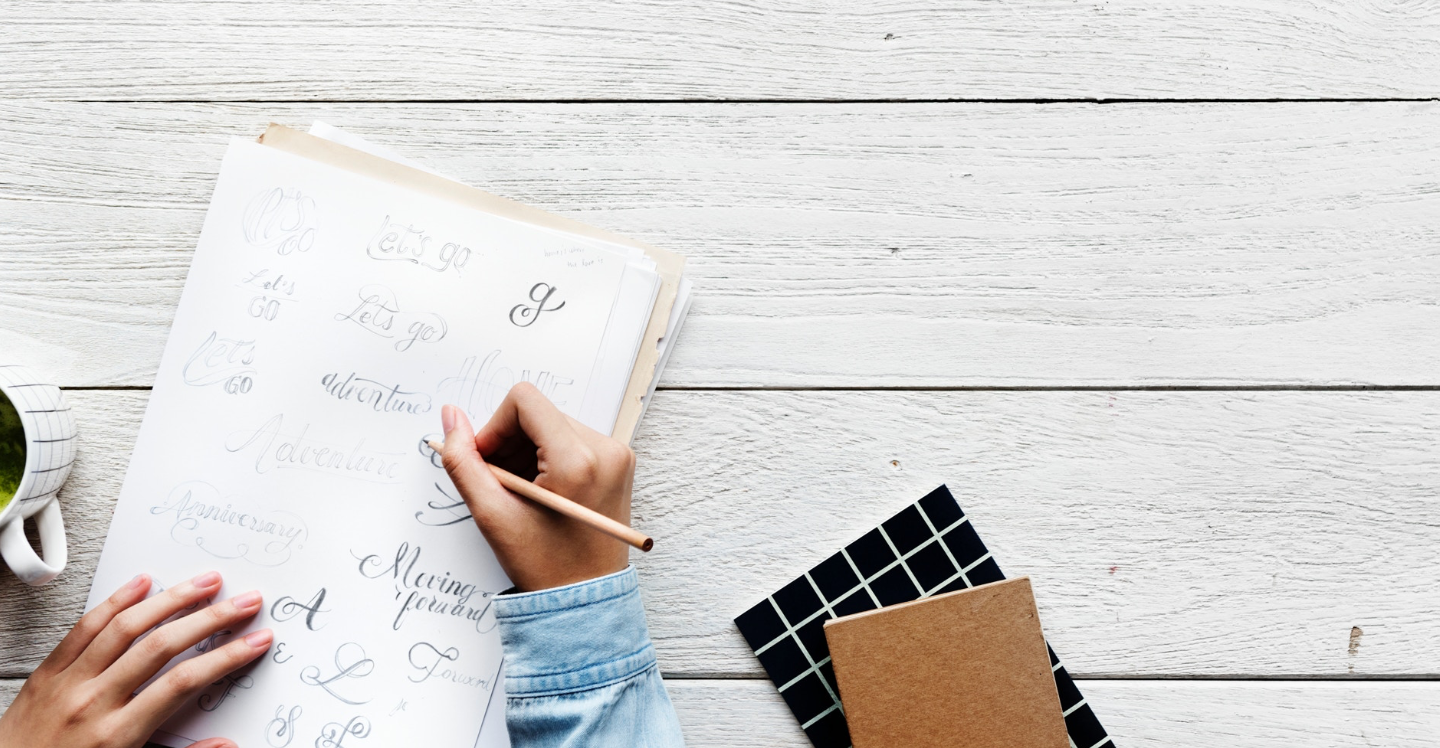 Let's
GO
Let's go
Let's
GO
Let's go
g
Let's
GO
adventure
HOME
Adventure
Anniversary
Moving
forward
A
Forward
E
L
F
S